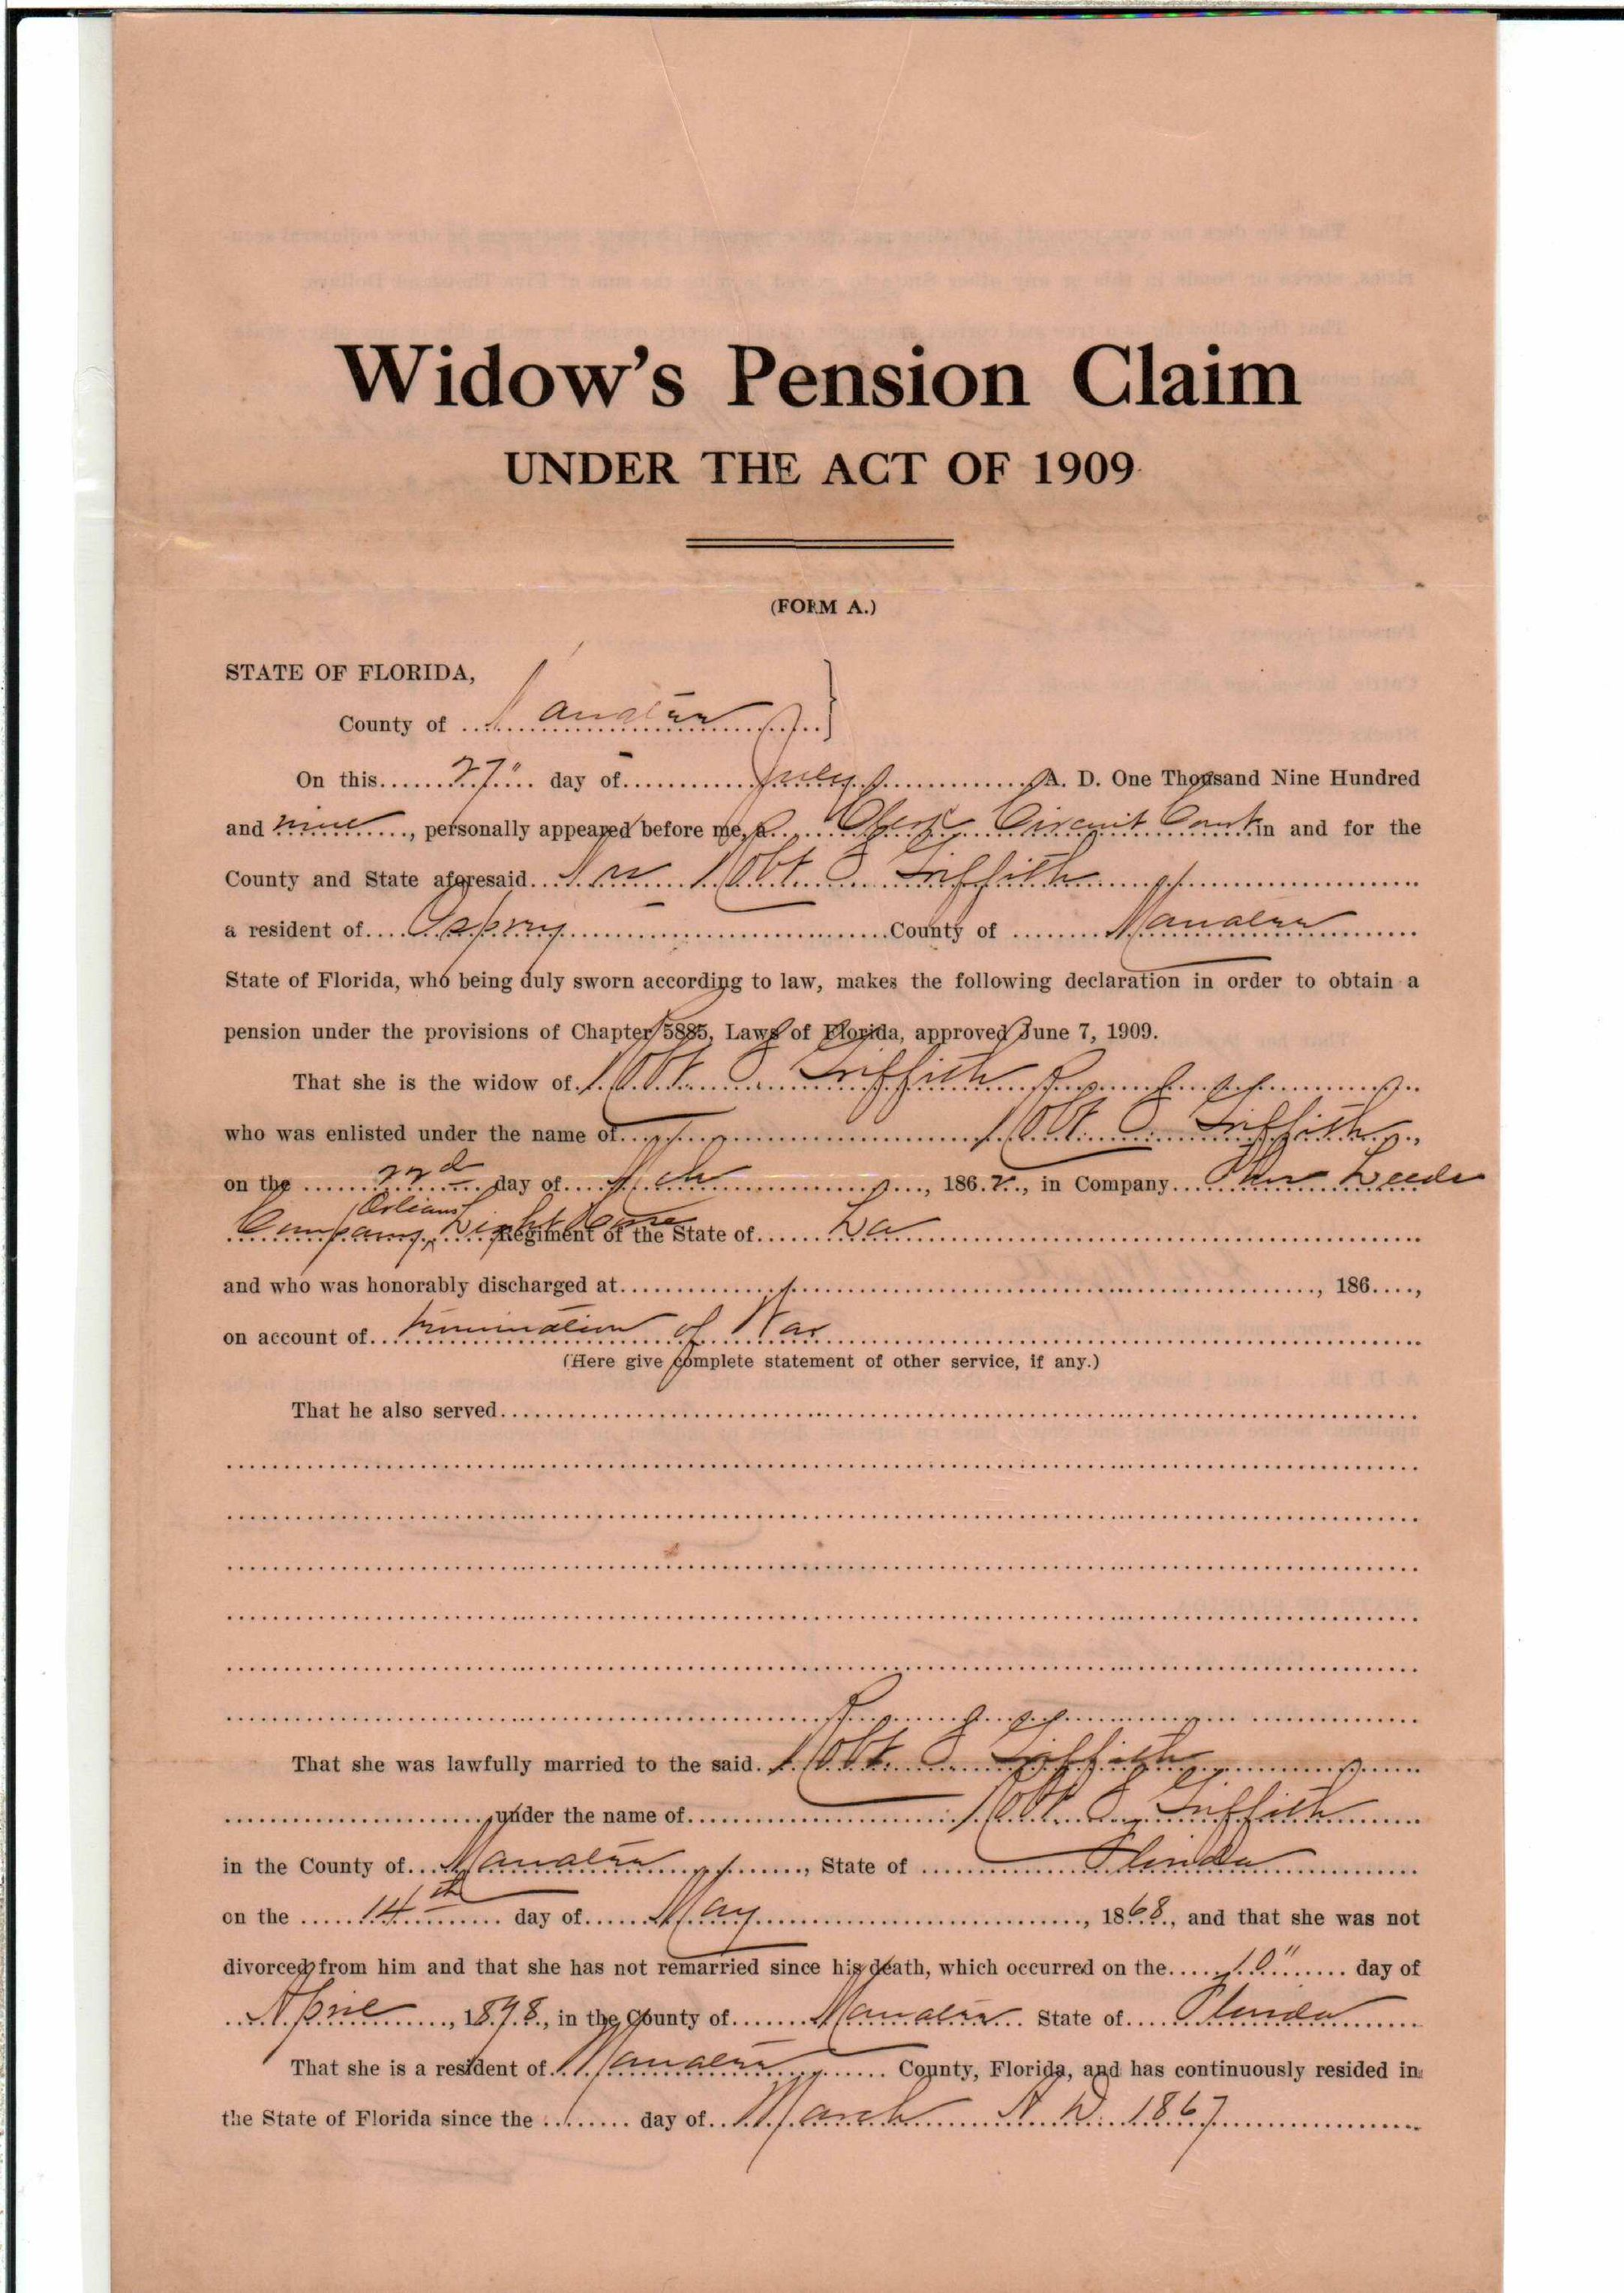 Widow's Pension Claim
UNDER THE ACT OF 1909
(FORM A.)
STATE OF FLORIDA,
County of Manatee
On this 27" day of July A. D. One Thousand Nine Hundred
and nine, personally appeared before me, a Clerk Circuit Court in and for the
County and State aforesaid Mrs Robt S Griffith
a resident of Osprey County of Manatee
State of Florida, who being duly sworn according to law, makes the following declaration in order to obtain a
pension under the provisions of Chapter 5885, Laws of Florida, approved June 7, 1909.
That she is the widow of Robt S Griffith
who was enlisted under the name of Robt S Griffith
on the 22d day of Mch, 1862, in Company Leeds
Orleans
Company, Light Horse Regiment of the State of La
and who was honorably discharged at , 186 ,
on account of termination of War
(Here give complete statement of other service, if any.)
That he also served
That she was lawfully married to the said Robt S Griffith
under the name of Robt S Griffith
in the County of Manatee, State of Florida
on the 14th day of May, 1868, and that she was not
divorced from him and that she has not remarried since his death, which occurred on the 10" day of
April, 1898, in the County of Manatee State of Florida
That she is a resident of Manatee County, Florida, and has continuously resided in
the State of Florida since the day of March A D. 1867